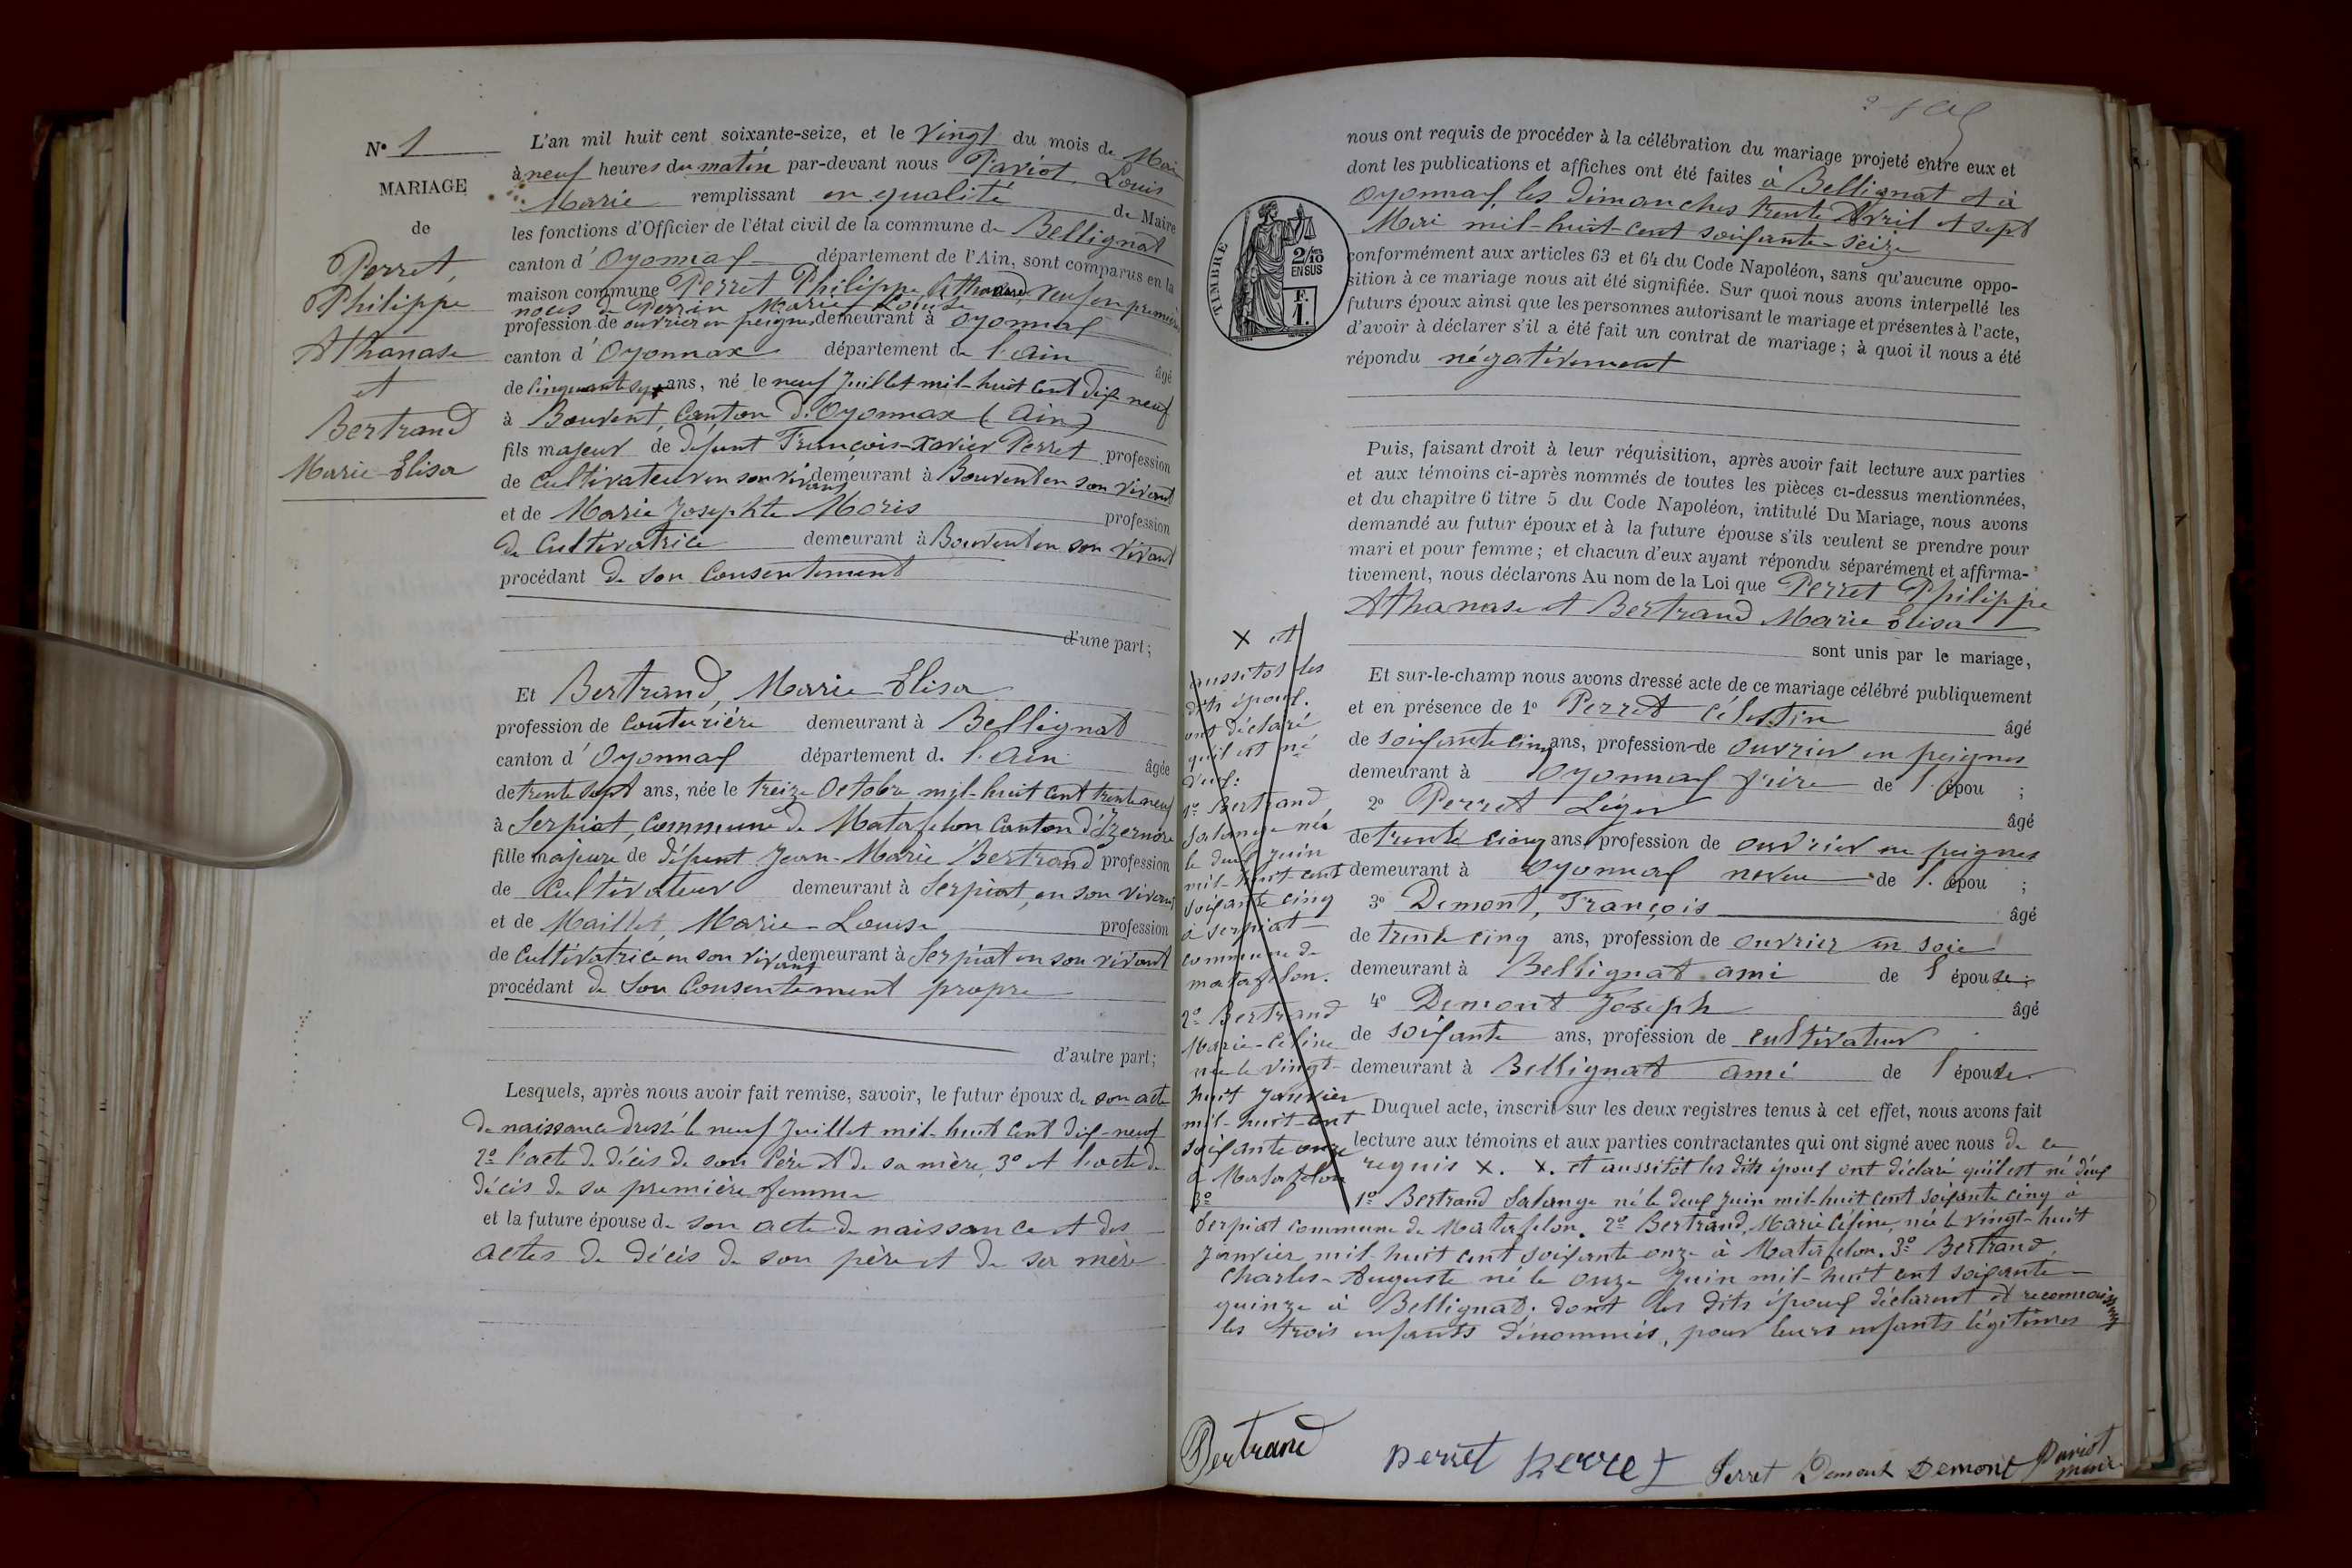 N° 1
MARIAGE
de
Perret,
Philippe
Athanase
et
Bertrand
Marie-Elisa
L'an mil huit cent soixante-seize, et le Vingt du mois de Mai
à neuf heures du matin par-devant nous Pariot, Louis
Marie remplissant en qualité de Maire
les fonctions d'Officier de l'état civil de la commune de Bellignat
canton d'Oyonnax département de l'Ain, sont comparus en la
maison commune Perret Philippe Athanase veuf en premières
noces de Perrin Marie Louise
profession de ouvrier en peignes demeurant à Oyonnax
canton d'Oyonnax département de l'Ain âgé
de cinquante sept ans, né le neuf Juillet mil-huit cent dix neuf
à Bouvent, Canton d'Oyonnax (Ain)
fils majeur de défunt François-Xavier Perret profession
de Cultivateur en son vivant demeurant à Bouvent en son vivant
et de Marie Josephte Moris profession
de Cultivatrice demeurant à Bouvent en son vivant
procédant de son Consentement
d'une part;
Et Bertrand, Marie-Elisa
profession de couturière demeurant à Bellignat
canton d'Oyonnax département de l'Ain âgée
de trente sept ans, née le treize Octobre mil-huit cent trente neuf
à Serpiat, Commune de Matafelon Canton d'Izernore
fille majeure de défunt Jean-Marie Bertrand profession
de Cultivateur demeurant à Serpiat, en son vivant
et de Maillet, Marie-Louise profession
de Cultivatrice en son vivant demeurant à Serpiat en son vivant
procédant de Son Consentement propre
d'autre part;
Lesquels, après nous avoir fait remise, savoir, le futur époux de son acte
de naissance dressé le neuf Juillet mil-huit cent dix-neuf
2° l'acte de décès de son Père et de sa mère, 3° et l'acte de
décès de sa première femme
et la future épouse de son acte de naissance et des
actes de décès de son père et de sa mère
nous ont requis de procéder à la célébration du mariage projeté entre eux et
dont les publications et affiches ont été faites à Bellignat et à
Oyonnax, les Dimanches trente Avril et sept
Mai mil-huit-cent soixante-seize
conformément aux articles 63 et 64 du Code Napoléon, sans qu'aucune oppo-
sition à ce mariage nous ait été signifiée. Sur quoi nous avons interpellé les
futurs époux ainsi que les personnes autorisant le mariage et présentes à l'acte,
d'avoir à déclarer s'il a été fait un contrat de mariage; à quoi il nous a été
répondu négativement
TIMBRE
2/10
EN SUS
F.
1.
Puis, faisant droit à leur réquisition, après avoir fait lecture aux parties
et aux témoins ci-après nommés de toutes les pièces ci-dessus mentionnées,
et du chapitre 6 titre 5 du Code Napoléon, intitulé Du Mariage, nous avons
demandé au futur époux et à la future épouse s'ils veulent se prendre pour
mari et pour femme; et chacun d'eux ayant répondu séparément et affirma-
tivement, nous déclarons Au nom de la Loi que Perret Philippe
Athanase et Bertrand Marie Elisa
sont unis par le mariage,
Et sur-le-champ nous avons dressé acte de ce mariage célébré publiquement
et en présence de 1° Perret Célestin âgé
de soixante cinq ans, profession de ouvrier en peignes
demeurant à Oyonnax frère de l'épou ;
2° Perret Léger âgé
de trente cinq ans, profession de ouvrier en peignes
demeurant à Oyonnax neveu de l'épou ;
3° Demont, François âgé
de trente cinq ans, profession de ouvrier en soie
demeurant à Bellignat ami de l'épouse;
4° Demont Joseph âgé
de soixante ans, profession de cultivateur
demeurant à Bellignat ami de l'épouse
X et
aussitot les
dits époux.
ont déclaré
qu'il est né
d'eux:
1° Bertrand
Salange née
le deux Juin
mil-huit-cent
soixante cinq
à Serpiat
commune de
matafelon.
2° Bertrand
Marie-Céline
née le vingt-
huit Janvier
mil-huit-cent
soixante onze
à Matafelon
3°
Duquel acte, inscrit sur les deux registres tenus à cet effet, nous avons fait
lecture aux témoins et aux parties contractantes qui ont signé avec nous de ce
requis X. X. et aussitôt les dits époux ont déclaré qu'il est né d'eux
1° Bertrand Salange né le deux Juin mil-huit cent soixante cinq à
Serpiat commune de Matafelon. 2° Bertrand, Marie Céline, née le vingt-huit
Janvier mil-huit cent soixante onze à Matafelon. 3° Bertrand,
Charles-Auguste né le onze Juin mil-huit cent soixante-
quinze à Bellignat. dont les dits époux déclarent et reconnaissent
les trois enfants dénommés, pour leurs enfants légitimes
Bertrand perret perret Perret Demont Demont Pariot
maire